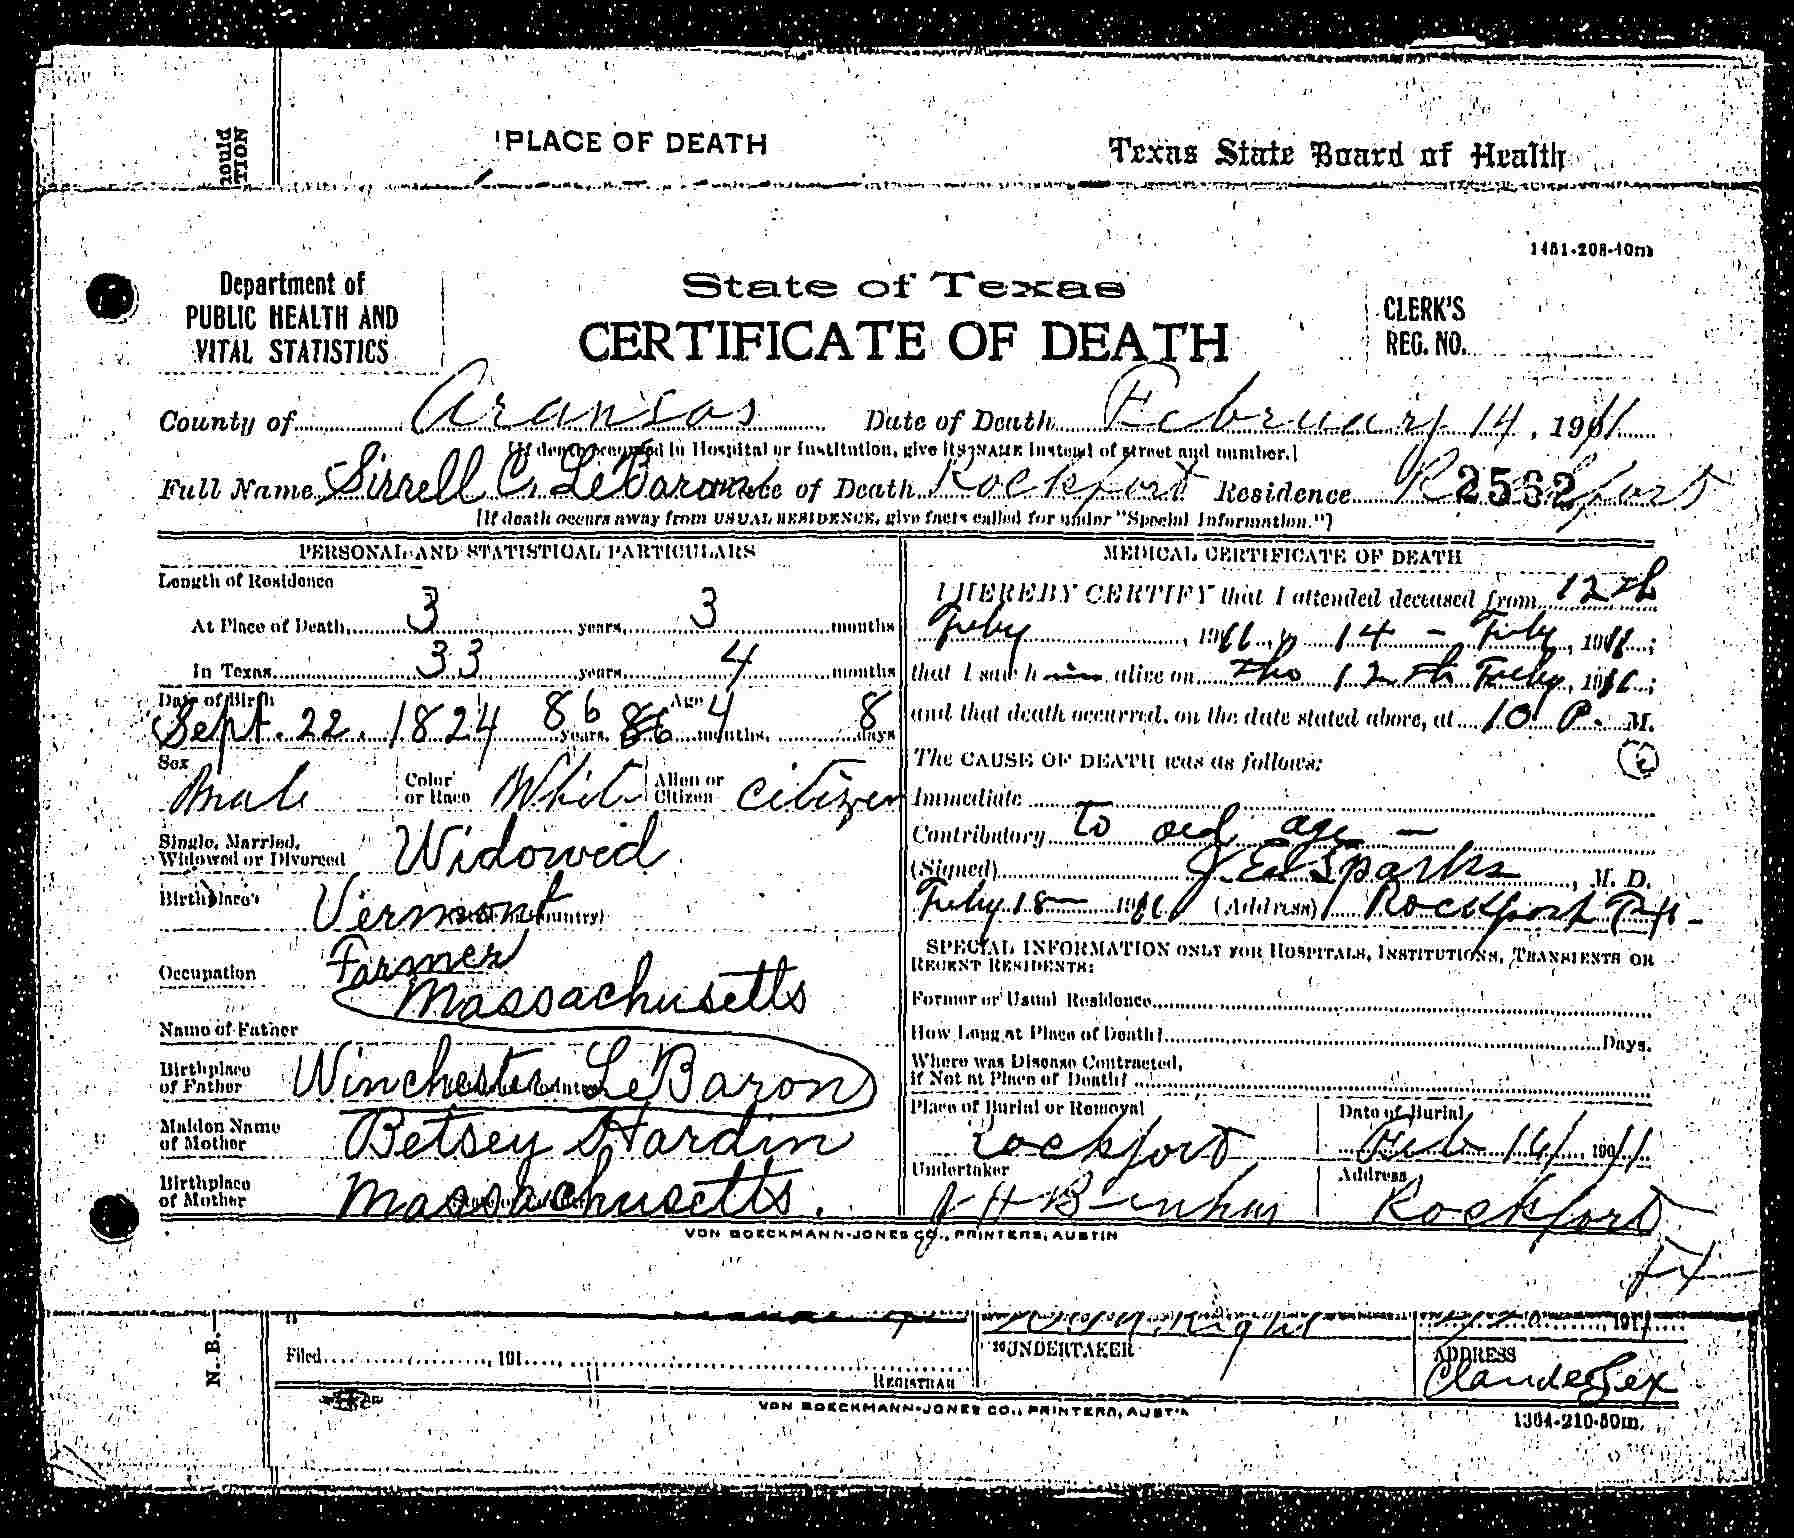 PLACE OF DEATH
Texas State Board of Health
1451-208-40m
Department of
PUBLIC HEALTH AND
VITAL STATISTICS
State of Texas
CERTIFICATE OF DEATH
CLERK'S
REG. NO.
County of Aransas Date of Death February 14, 1911
[If death occurred in Hospital or Institution, give its NAME instead of street and number.]
Full Name Sirrell C. LeBaron Place of Death Rockport Residence Rockport
2562
[If death occurs away from USUAL RESIDENCE, give facts called for under "Special Information."]
PERSONAL AND STATISTICAL PARTICULARS
Length of Residence
At Place of Death 3 years, 3 months
In Texas 33 years 4 months
Date of Birth Age
Sept. 22. 1824 86 years, 86 4 months, 8 days
Sex Male Color or Race White Alien or Citizen citizen
Single, Married, Widowed or Divorced Widowed
Birthplace Vermont
Occupation Farmer
Massachusetts
Name of Father
Birthplace of Father Winchester LeBaron
Maiden Name of Mother Betsey Hardin
Birthplace of Mother Massachusetts.
MEDICAL CERTIFICATE OF DEATH
I HEREBY CERTIFY that I attended deceased from 12th
Feby, 1911, 14 - Feby, 1911;
that I saw him alive on the 12th Feby, 1911;
and that death occurred, on the date stated above, at 10 P. M.
The CAUSE OF DEATH was as follows:
Immediate
Contributory to old age -
(Signed) J. Ed Sparks, M. D.
Feby 18 - 1911 (Address) Rockport Tex -
SPECIAL INFORMATION ONLY FOR HOSPITALS, INSTITUTIONS, TRANSIENTS OR
RECENT RESIDENTS:
Former or Usual Residence
How Long at Place of Death? Days.
Where was Disease Contracted,
if Not at Place of Death?
Place of Burial or Removal Rockport Date of Burial Feb 16, 1911
Undertaker Address Rockport
VON BOECKMANN-JONES CO., PRINTERS, AUSTIN
Filed 191
REGISTRAR
20 UNDERTAKER
ADDRESS
Claude Tex
N. B.—
VON BOECKMANN-JONES CO., PRINTERS, AUSTIN
1364-210-50m.